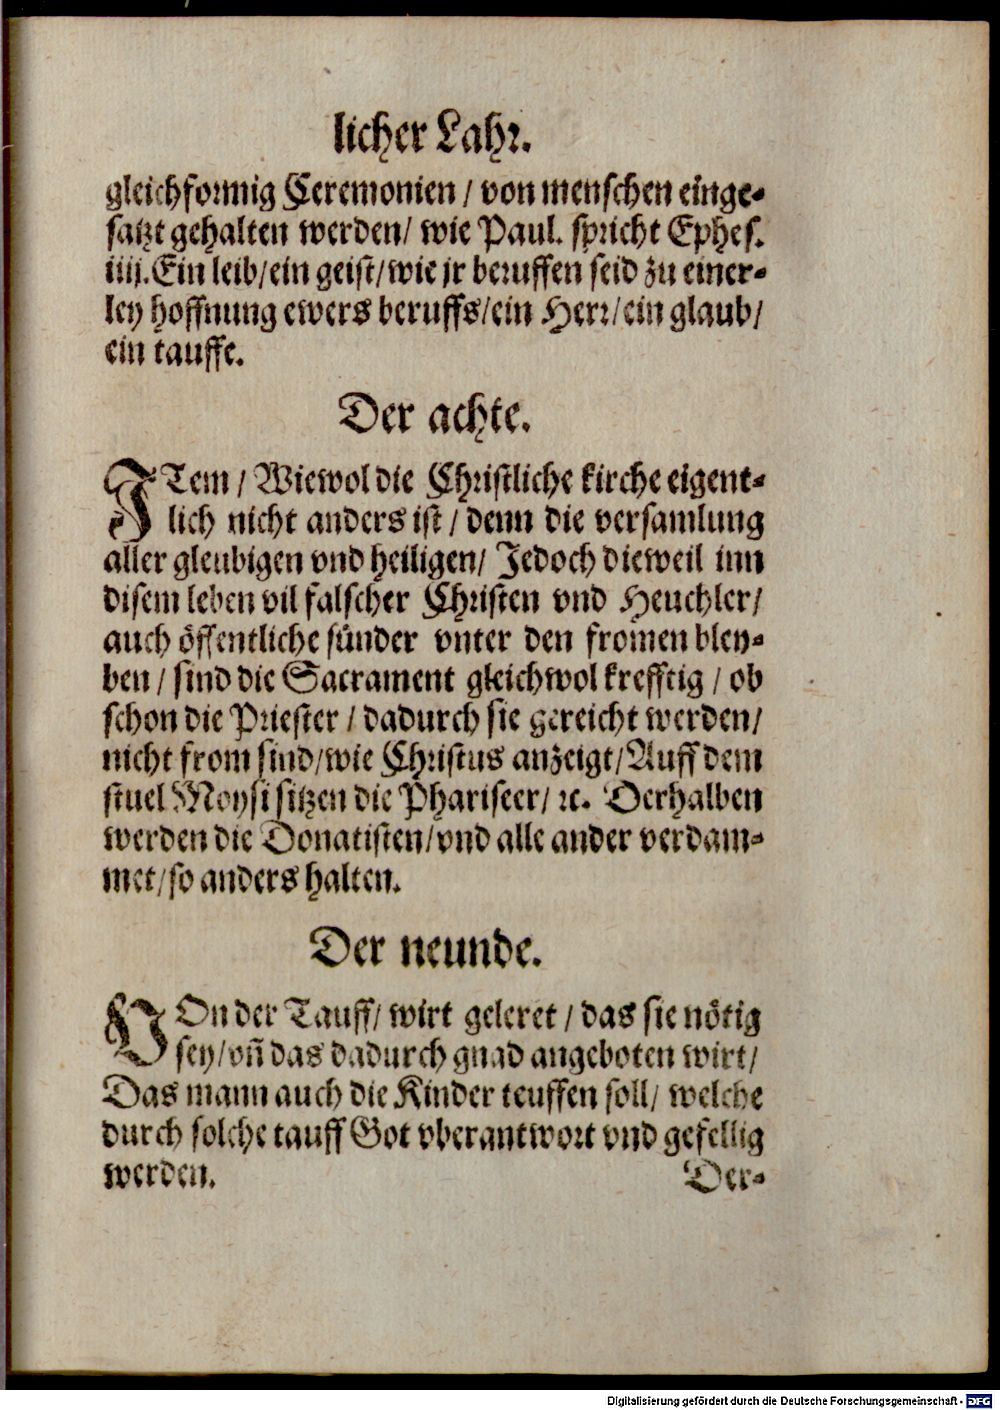 licher Lahr.
gleichformig Ceremonien / von menschen einge-
satzt gehalten werden/ wie Paul. spricht Ephes.
iiij. Ein leib/ein geist/wie jr beruffen seid zu einer-
ley hoffnung ewers beruffs/ein Herr/ein glaub/
ein tauffe.
Der achte.
ITem / Wiewol die Christliche kirche eigent-
lich nicht anders ist / denn die versamlung
aller gleubigen vnd heiligen/ Jedoch dieweil inn
disem leben vil falscher Christen vnd Heuchler/
auch öffentliche sünder vnter den fromen bley-
ben / sind die Sacrament gleichwol krefftig / ob
schon die Priester / dadurch sie gereicht werden/
nicht from sind/wie Christus anzeigt/Auff dem
stuel Moysi sitzen die Phariseer/ ꝛc. Derhalben
werden die Donatisten/vnd alle ander verdam-
met/so anders halten.
Der neunde.
VOn der Tauff/ wirt geleret / das sie nötig
sey/vn̄ das dadurch gnad angeboten wirt/
Das mann auch die Kinder teuffen soll/ welche
durch solche tauff Got vberantwort vnd gefellig
werden. Der-
Digitalisierung gefördert durch die Deutsche Forschungsgemeinschaft - DFG